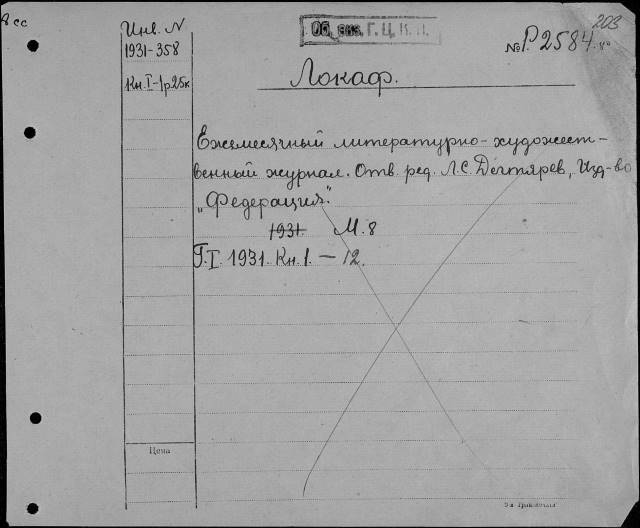 8 сс
203
Инв. N
1931-358
Кн. I-1р25к
Об. экз. Г. Ц. К. П.
№ Р2584
Локаф.
Ежемесячный литературно-художест-
венный журнал. Отв. ред. Л.С. Дегтярев, Изд-во
„Федерация".
1931. М. 8
Г. I. 1931. Кн. 1. — 12.
Цена